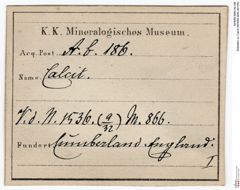 K. K. Mineralogisches Museum.
Acq. Post. A.b. 186.
Name. Calcit.
V. d. N. 1536. (9/32) M. 866.
Fundort Cumberland. England.
I